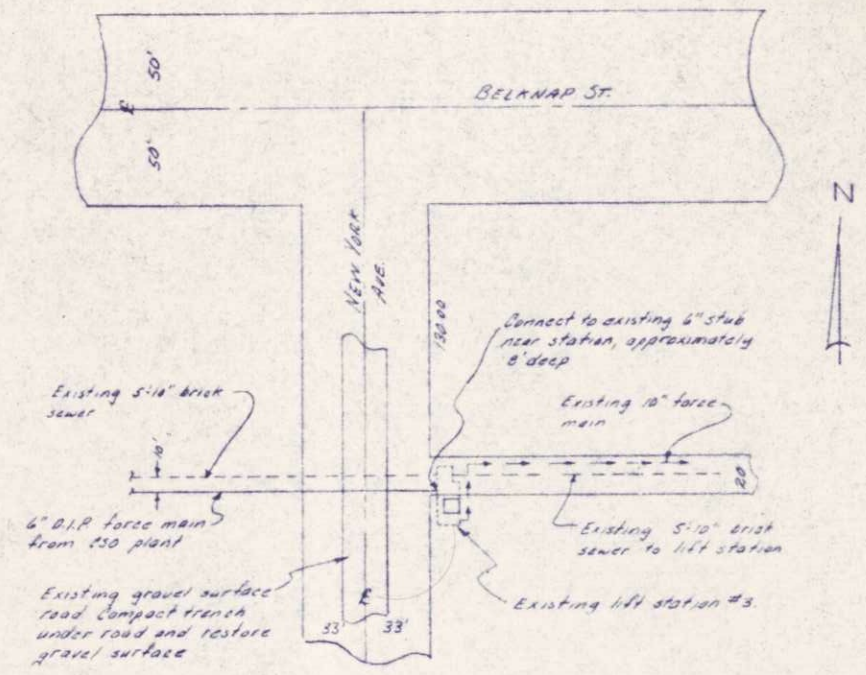 50'
℄
50'
BELKNAP ST.
N
NEW YORK
AVE.
130.00
Connect to existing 6" stub
near station, approximately
8' deep
Existing 5'-10" brick
sewer
Existing 10" force
main
10'
20'
6" D.I.P. force main
from CSO plant
Existing 5'-10" brick
sewer to lift station
Existing gravel surface
road. Compact trench
under road and restore
gravel surface
℄
Existing lift station #3.
33' 33'